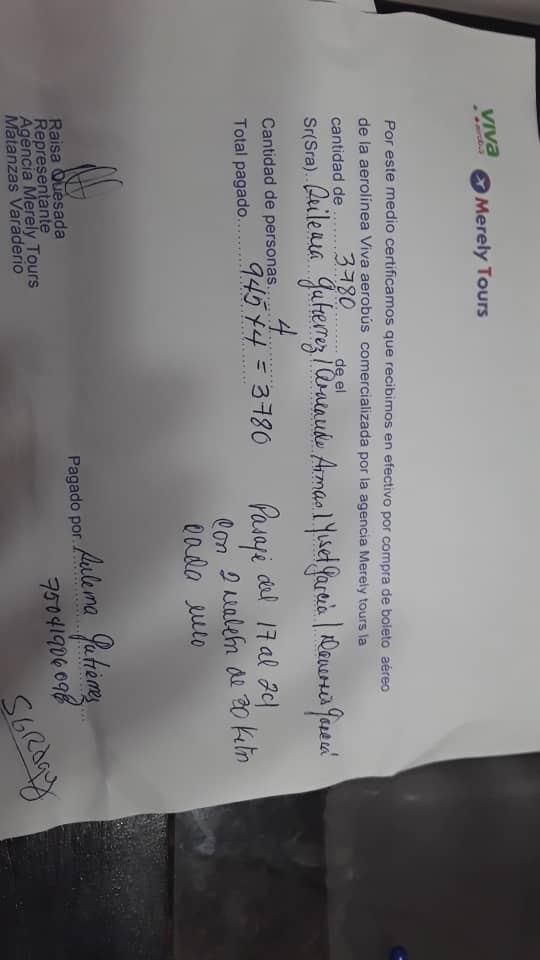 viva
aerobus
Merely Tours
Por este medio certificamos que recibimos en efectivo por compra de boleto aéreo
de la aerolínea Viva aerobús comercializada por la agencia Merely tours la
cantidad de 3780 de el
Sr(Sra). Gutierrez / Armas / Yiset Garcia / Garcia
Cantidad de personas 4
Total pagado 945 x 4 = 3780
Pasaje del 17 al 24
Con 2 de 30 kilos
cada uno
Raisa Quesada
Representante
Agencia Merely Tours
Matanzas Varaderio
Pagado por Gutierres
75041906098